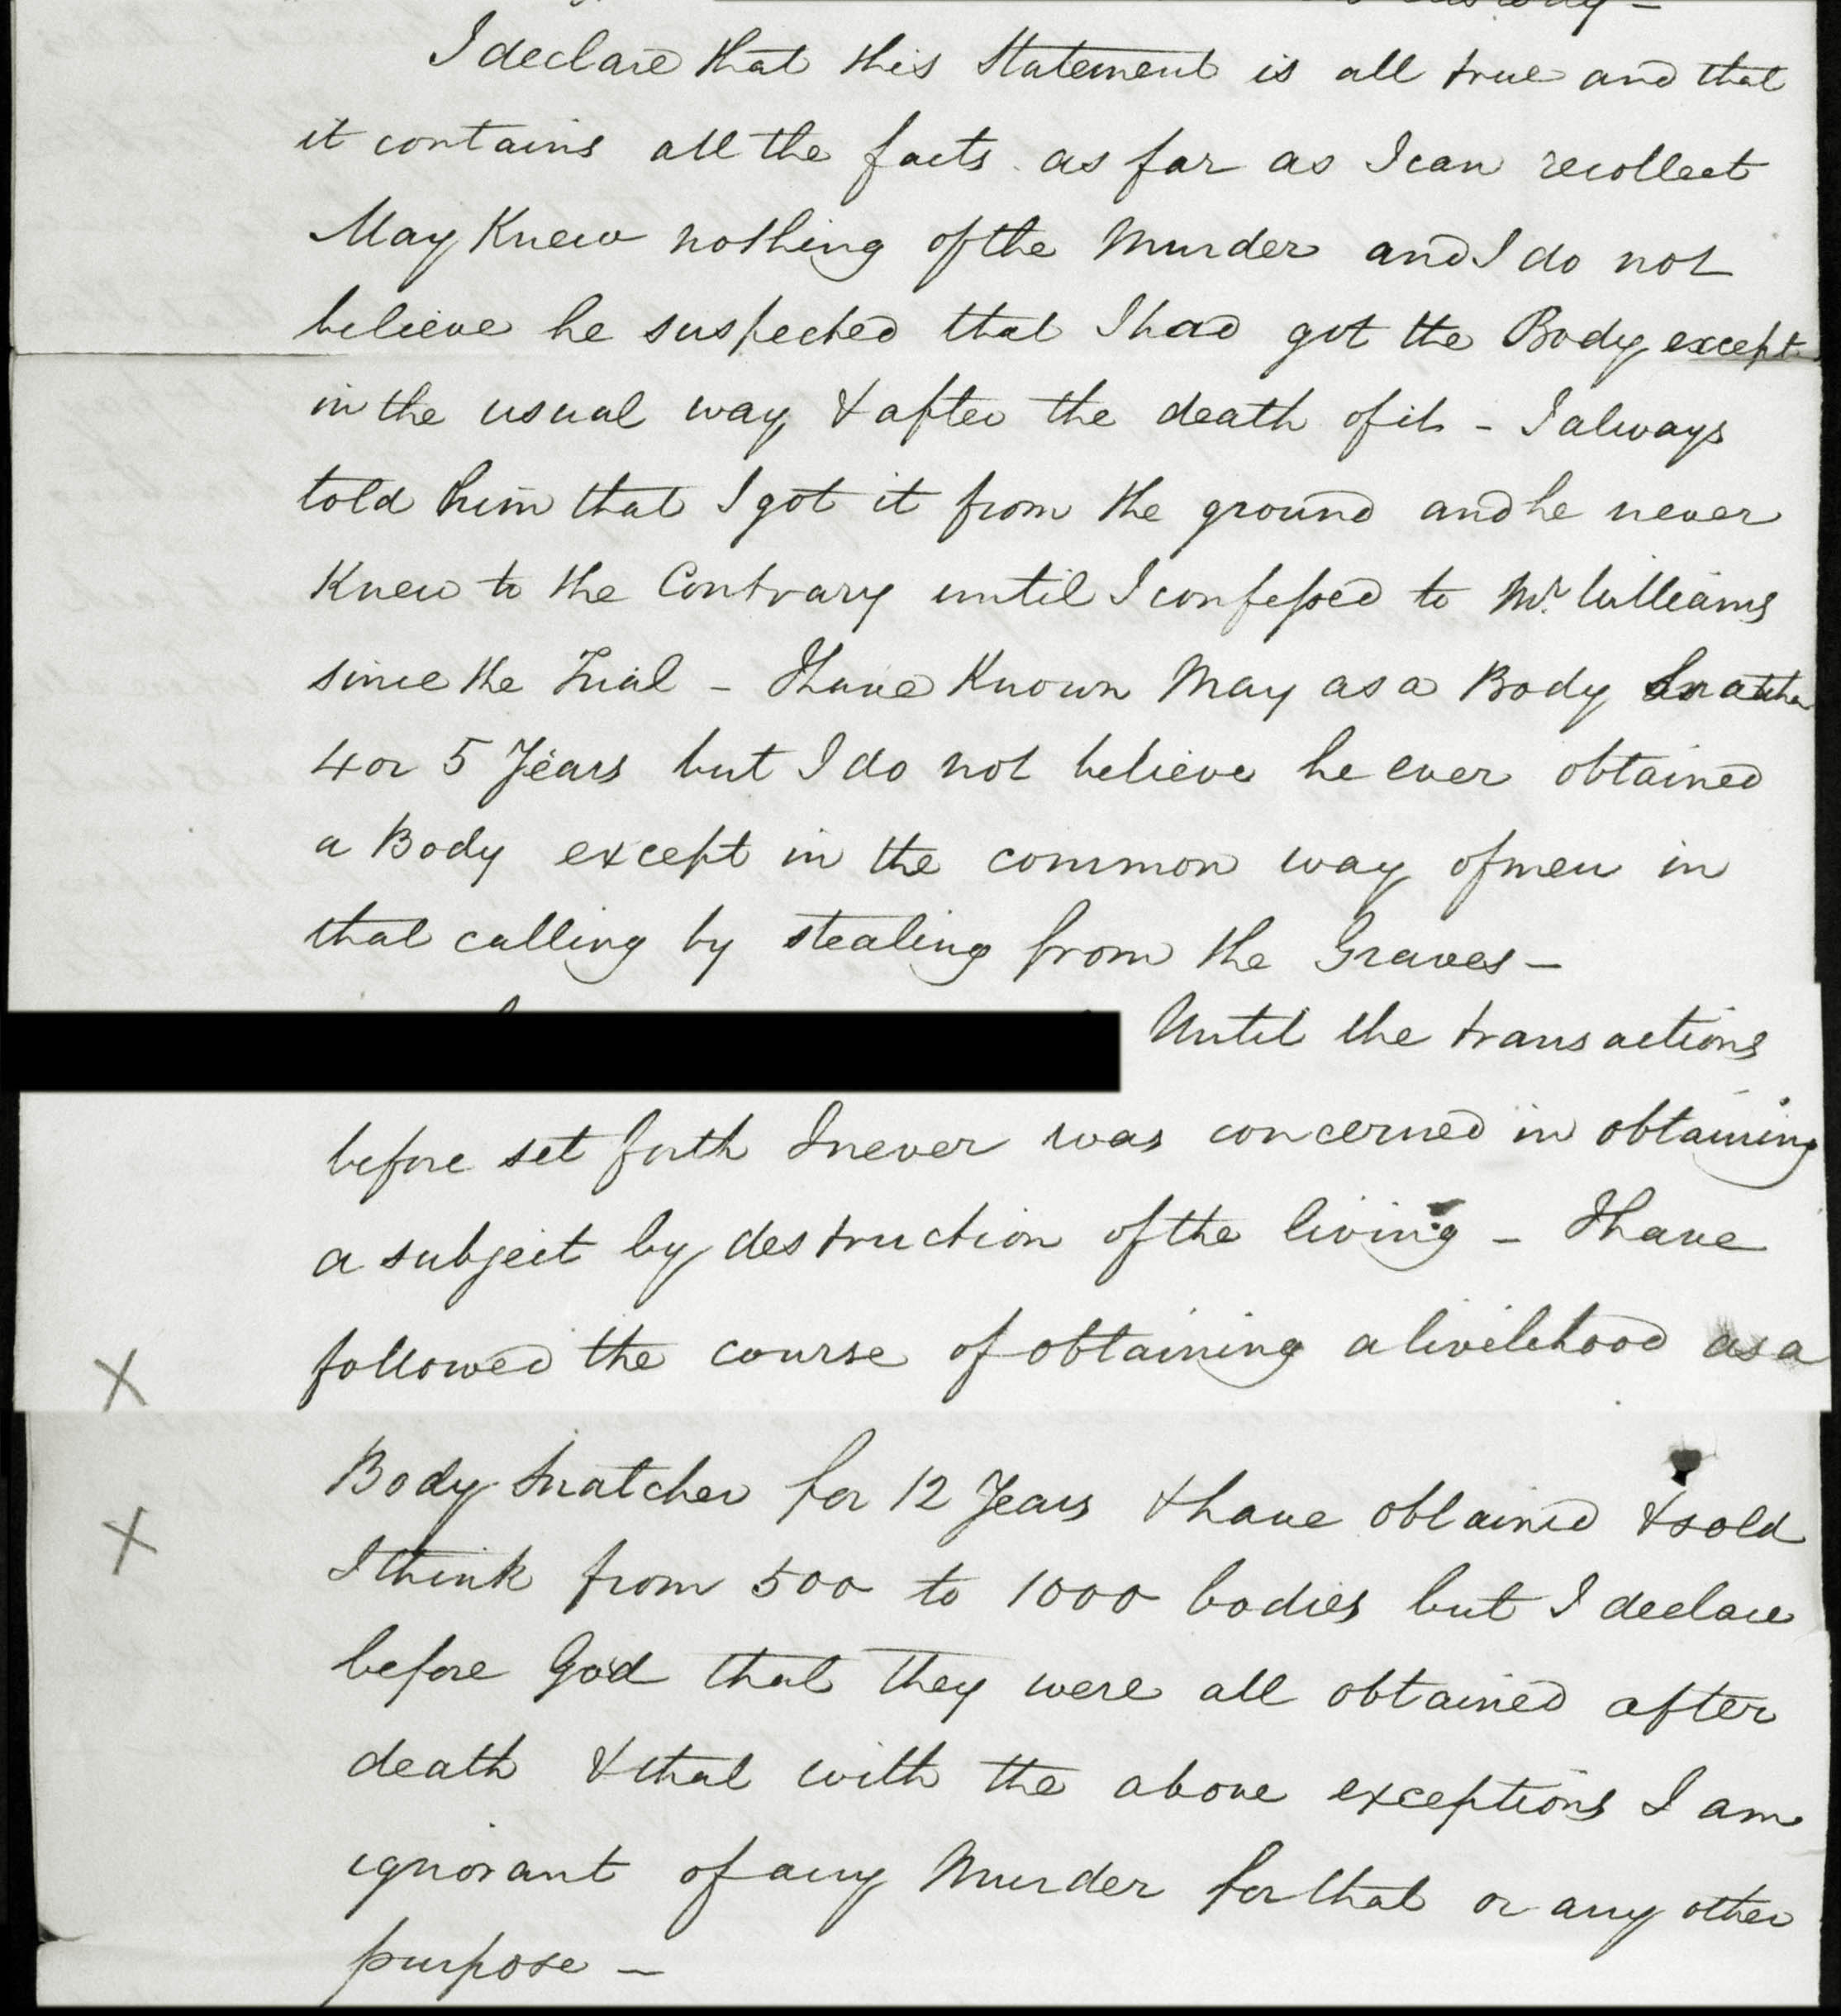 I declare that this Statement is all true and that
it contains all the facts as far as I can recollect
May Knew nothing of the Murder and I do not
believe he suspected that I had got the Body except
in the usual way & after the death of it - I always
told him that I got it from the ground and he never
Knew to the Contrary until I confessed to Mr. Williams
since the Trial - I have Known May as a Body Snatcher
4 or 5 Years but I do not believe he ever obtained
a Body except in the common way of men in
that calling by stealing from the Graves -
Until the transactions
before set forth I never was concerned in obtaining
a subject by destruction of the living - I have
followed the course of obtaining a livelihood as a
Body Snatcher for 12 Years & have obtained & sold
I think from 500 to 1000 bodies but I declare
before God that they were all obtained after
death & that with the above exceptions I am
ignorant of any Murder for that or any other
purpose -